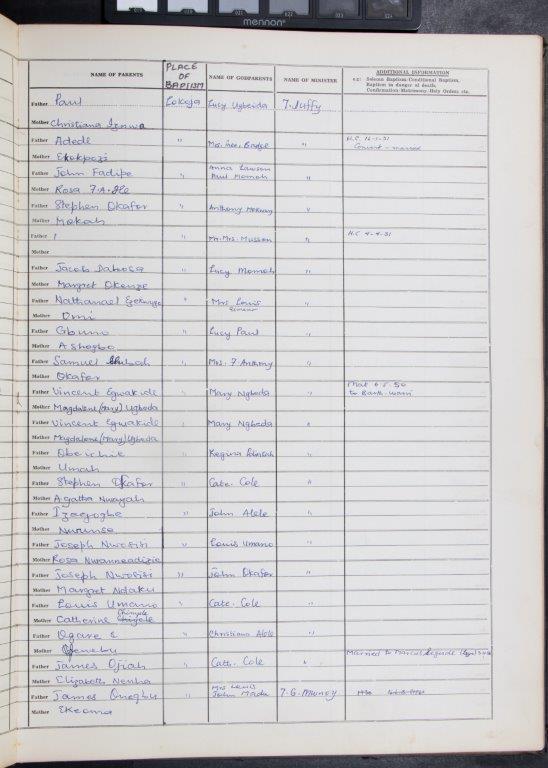 mennon
NAME OF PARENTS PLACE OF BAPTISM NAME OF GODPARENTS NAME OF MINISTER ADDITIONAL INFORMATION
e.g: Solemn Baptism: Conditional Baptism,
Baptism in danger of death,
Confirmation: Matrimony: Holy Orders: etc.
Father Paul Lokoja Lucy Ugbeida
Mother Christiana
Father Adede " " H.C.
Mother Convert - married
Father John Fadipe " Anna Lawson Paul Momoh "
Mother Rosa
Father Stephen Okafor " Anthony "
Mother Mokah
Father " Mr. Mrs. Musson " H.C 4-4-31
Mother
Father Jacob Dabosa " Lucy Momoh "
Mother Margret Okenze
Father Nathanael " Mrs Louis "
Mother Omi
Father Gbuno " Lucy Paul "
Mother Ashogbo
Father Samuel " Mrs. F Anthony "
Mother Okafor
Father Vincent Egwakide " Mary Ngbeda " Mat 6.5.50
Mother Magdalene (Mary) Ugbeda
Father Vincent Egwakide " Mary Ngbeda "
Mother Magdalene (Mary) Ugbeda
Father Obeichie " Regina "
Mother Umah
Father Stephen Okafor " Cate. Cole "
Mother Agatha Nwayah
Father Izagogbe " John Alele "
Mother Nwunse
Father Joseph Nwosisi " Louis Umano "
Mother Rosa
Father Joseph Nwosisi " John Okafor "
Mother Margret Ndaku
Father Louis Umano " Cate. Cole "
Mother Catherine Chinyele
Father Ogare " Christiana Alele "
Mother Married to
Father James Ojiah " Cath. Cole "
Mother Elizabeth Nenha
Father James Onegbu " Mrs Lewis John Mada
Mother Ekeoma